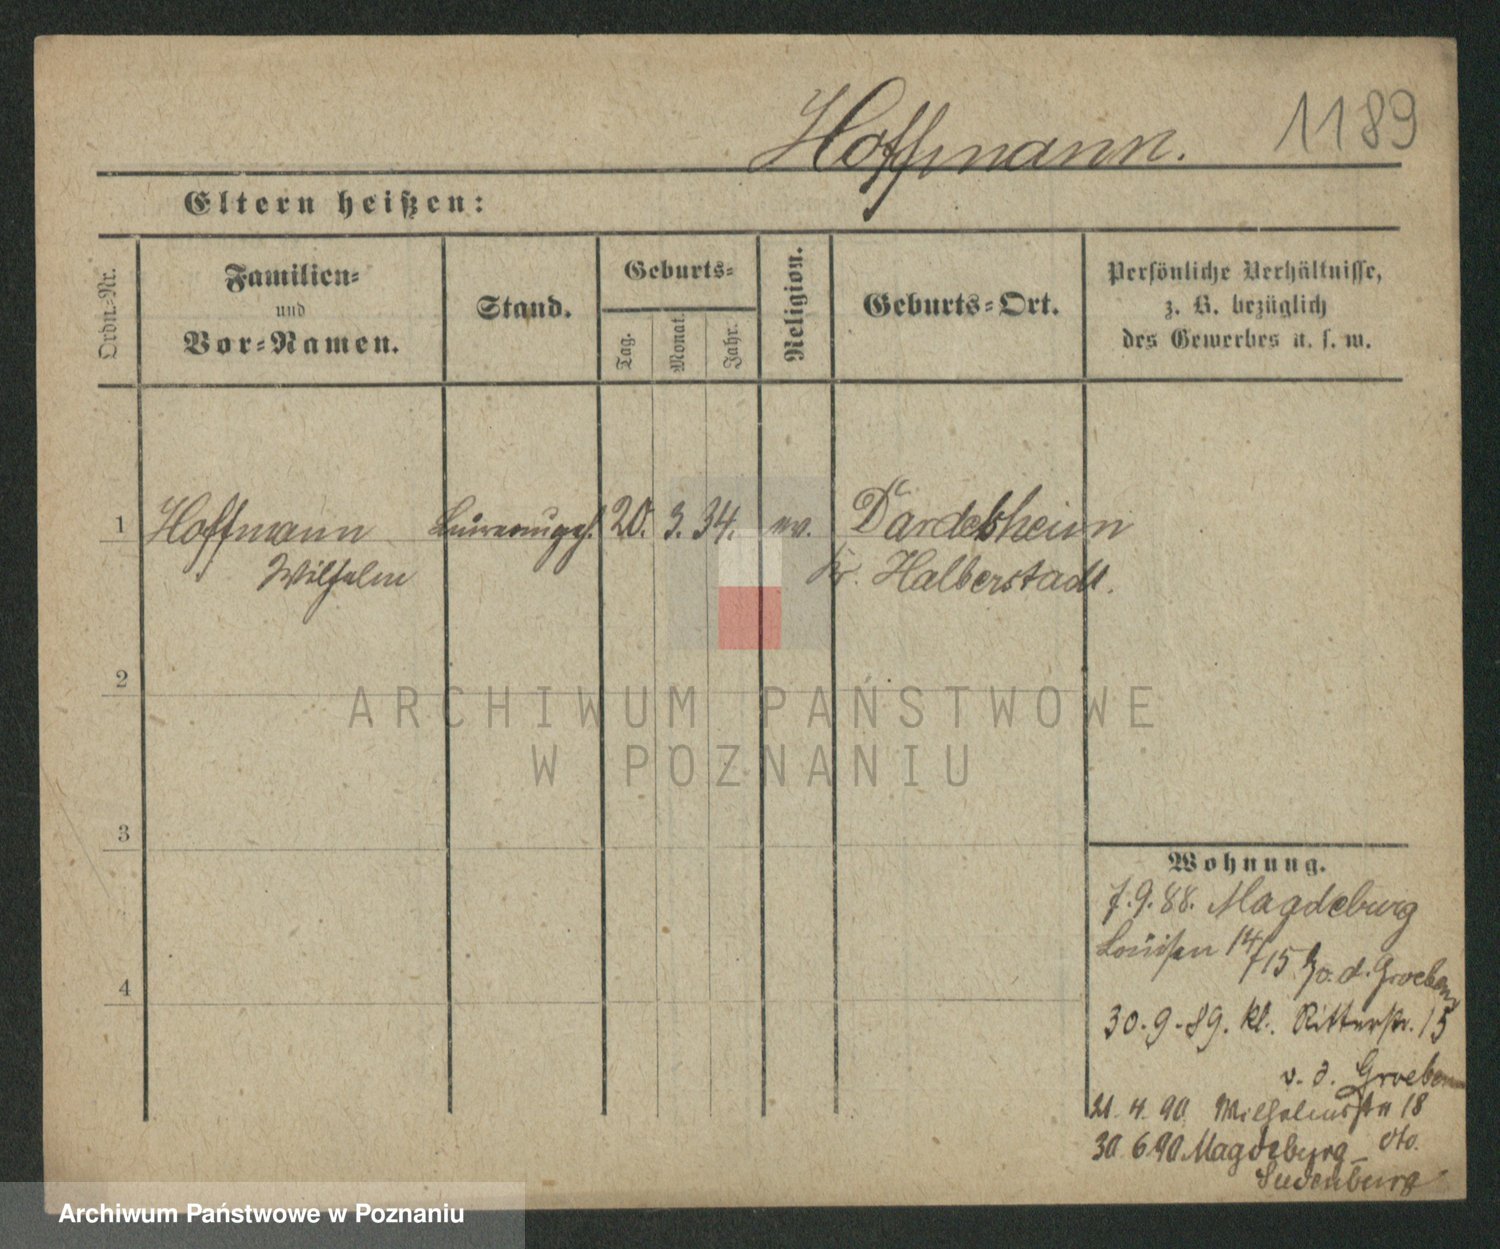 1189
Hoffmann.
Eltern heißen:
Ordn.-Nr.
Familien-
und
Vor-Namen.
Stand.
Geburts-
Tag.
Monat.
Jahr.
Religion.
Geburts-Ort.
Persönliche Verhältnisse,
z. B. bezüglich
des Gewerbes u. s. w.
1
Hoffmann
Wilhelm
20. 3. 34. ev.
Dardesheim
Kr. Halberstadt.
2
3
4
Wohnung.
7.9.88. Magdeburg
Louisen 14/15 v. d. Groeben
30.9.89. Kl. Ritterstr. 15
v. d. Groeben
21. 4. 90 Wilhelmstr 18
dto.
30. 6. 90 Magdeburg -
Sudenburg
ARCHIWUM PAŃSTWOWE
W POZNANIU
Archiwum Państwowe w Poznaniu